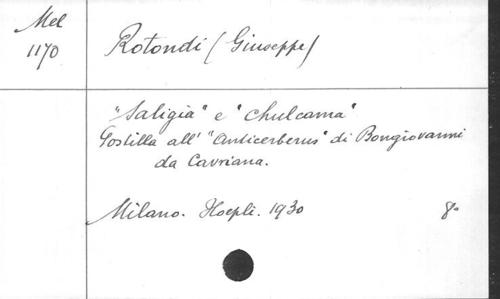 Mel
1170
Rotondi (Giuseppe)
"Saligia" e "Chulcama"
Postilla all' "Anticerberus" di Bongiovanni
da Cavriana.
Milano. Hoepli. 1930 8º